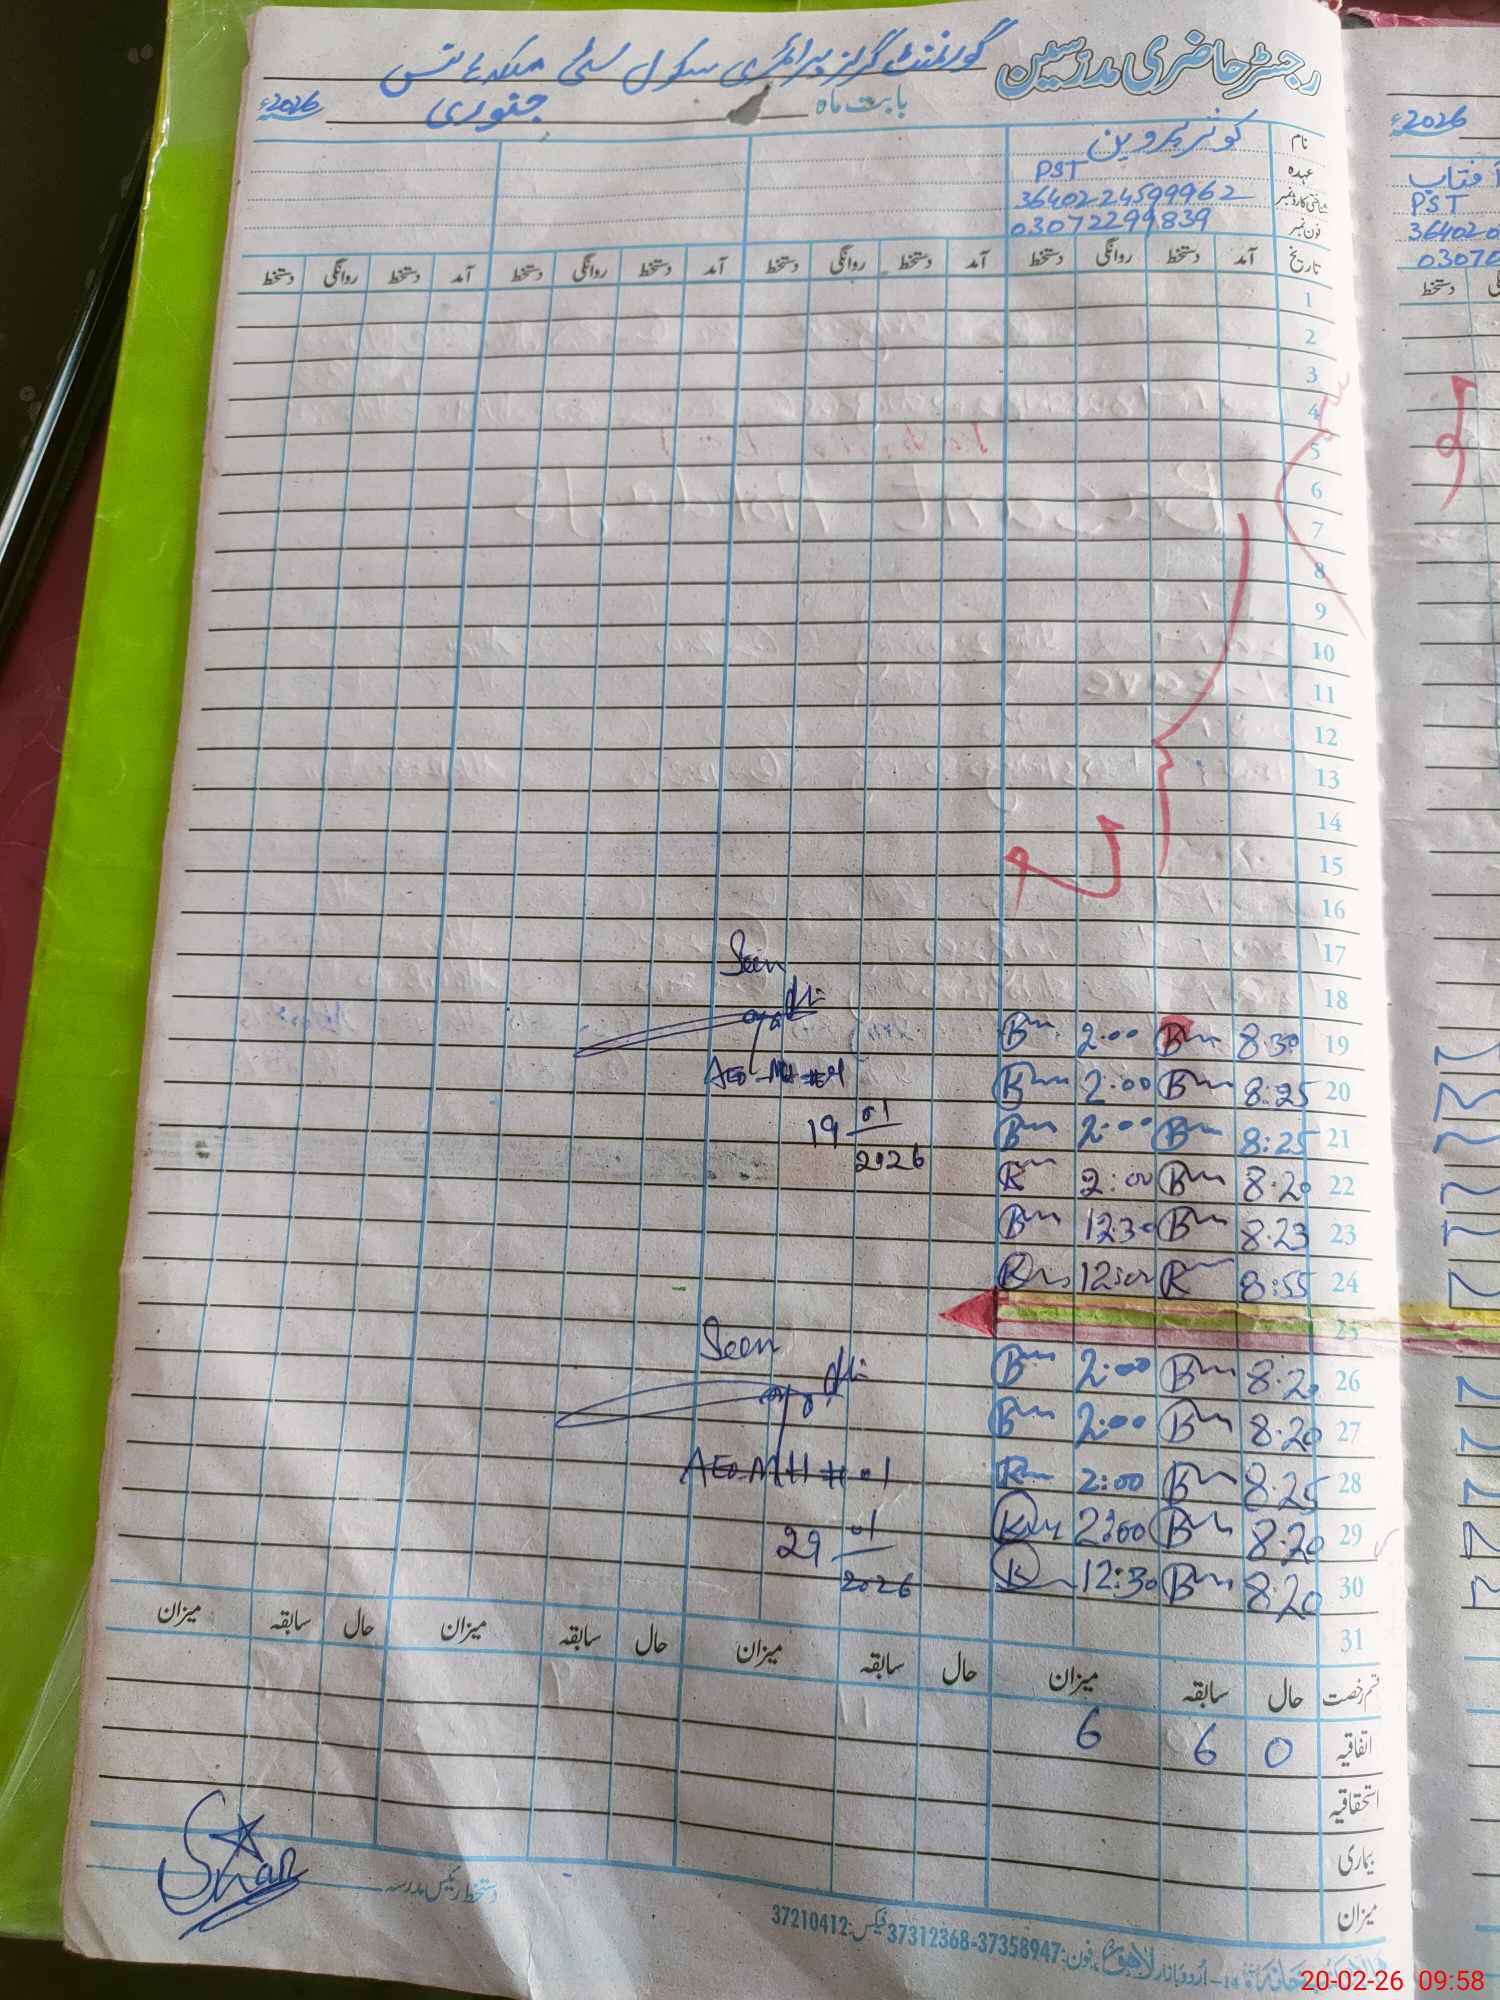 رجسٹر حاضری مدرسین گورنمنٹ گرلز پرائمری سکول سٹی
بابت ماہ جنوری 2026ء
نام کوثر پروین
عہدہ PST
شناختی کارڈ نمبر 3640224599962
فون نمبر 03072299839
تاریخ آمد دستخط روانگی دستخط آمد دستخط روانگی دستخط آمد دستخط روانگی دستخط آمد دستخط روانگی دستخط
1
2
3
4
5
6
7
8
9
10
11
12
13
14
15
16
17
Seen
18
19 8:30 2:00
20 8:25 2:00
AEO
21 8:25 2:00
19 01
2026
22 8:20 2:00
23 8:23 12:30
24 8:55
25
Seen
26 8:20 2:00
27 8:20 2:00
28 8:25 2:00
AEO MH # 01
29 8:20 2:00
29 01
2026
30 8:20 12:30
31
قسم رخصت حال سابقہ میزان حال سابقہ میزان حال سابقہ میزان حال سابقہ میزان
اتفاقیہ 0 6 6
استحقاقیہ
بیماری
میزان
Shan
دستخط رئیس مدرسہ
اردو بازار لاہور فون: 37358947-37312368 فیکس: 37210412
2026ء
آفتاب
PST
364020
0307
دستخط
20-02-26 09:58